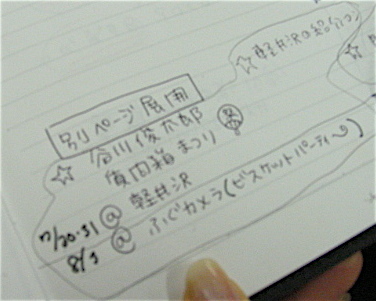 ☆軽井沢の紹介
別ページ展開
☆谷川俊太郎
貨内箱まつり 祭
7/30.31 @ 軽井沢
8/3 @ ふじカメラ(ビスケットパーティー)